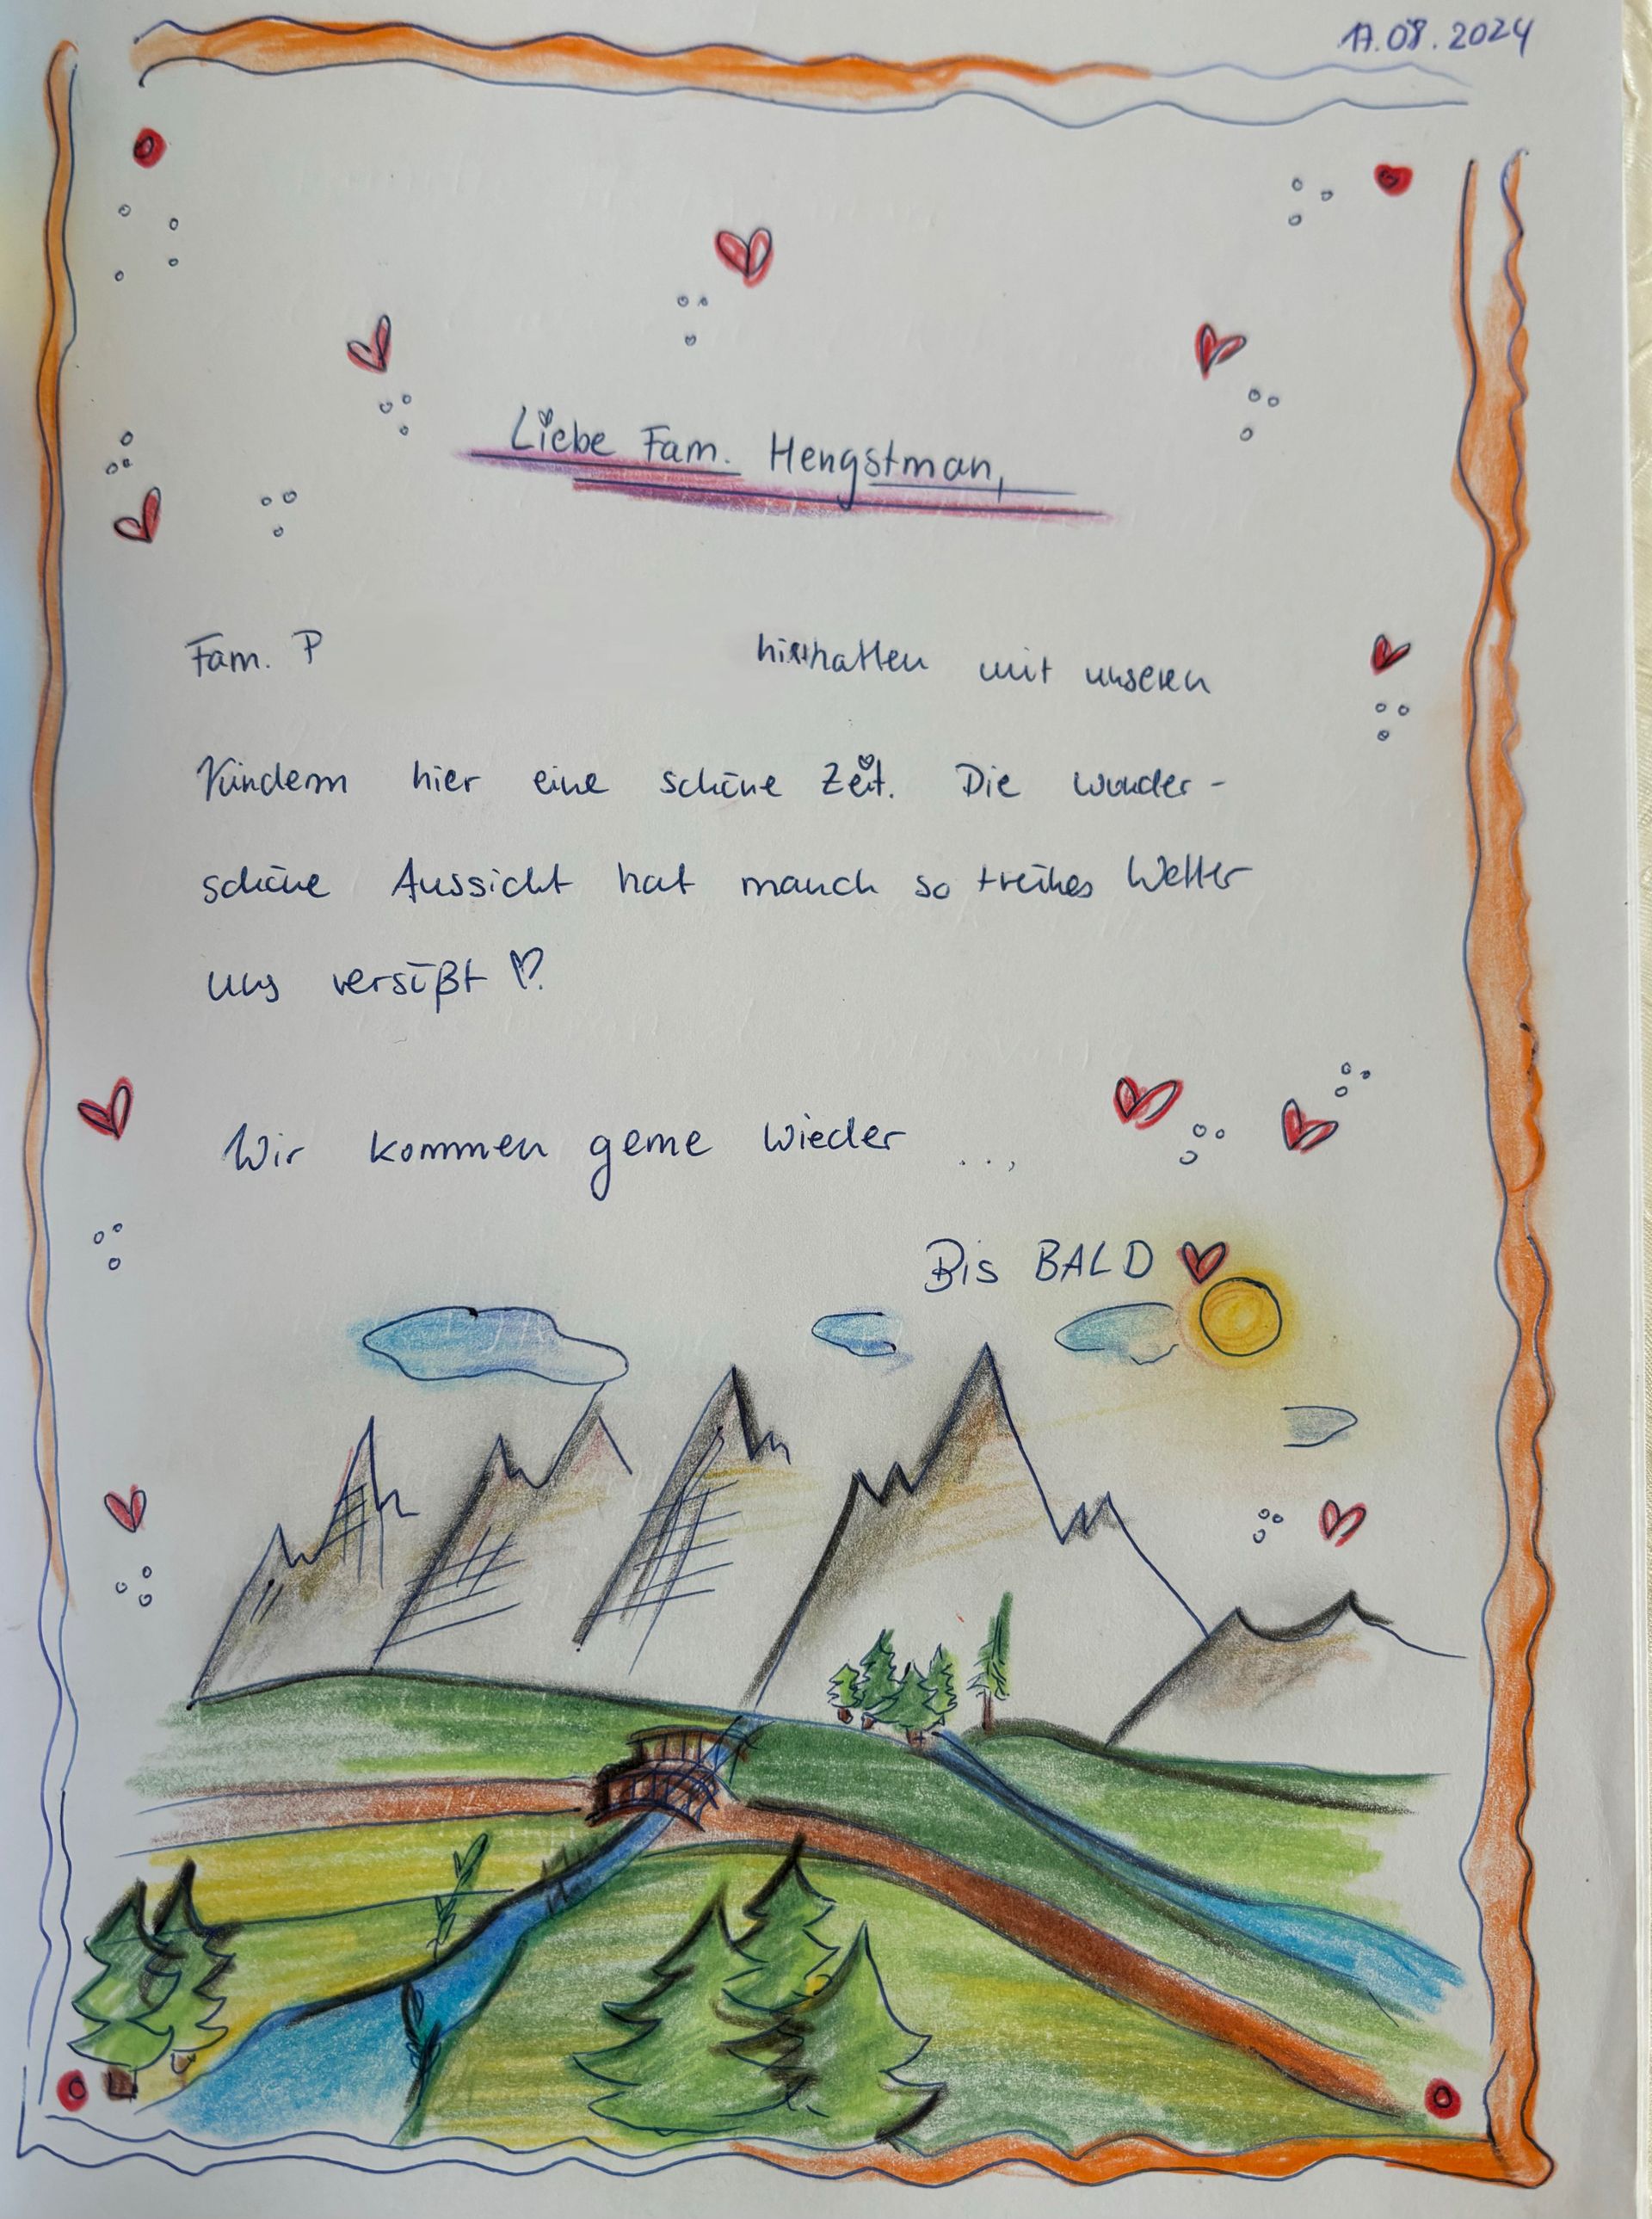 17.08.2024
Liebe Fam. Hengstman,
Fam. P hatten mit unseren
Kindern hier eine schöne Zeit. Die wunder-
schöne Aussicht hat manch so trübes Wetter
uns versüßt ♡.
Wir kommen gerne wieder ...
Bis BALD